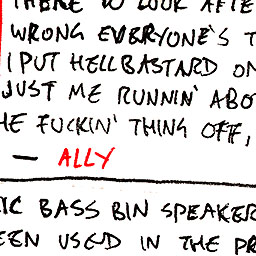 THERE TO LOOK AFTE
WRONG EVERYONE'S T
I PUT HELLBASTARD ON
JUST ME RUNNIN' ABO
HE FUCKIN' THING OFF,
— ALLY
IC BASS BIN SPEAKER
EEN USED IN THE PR